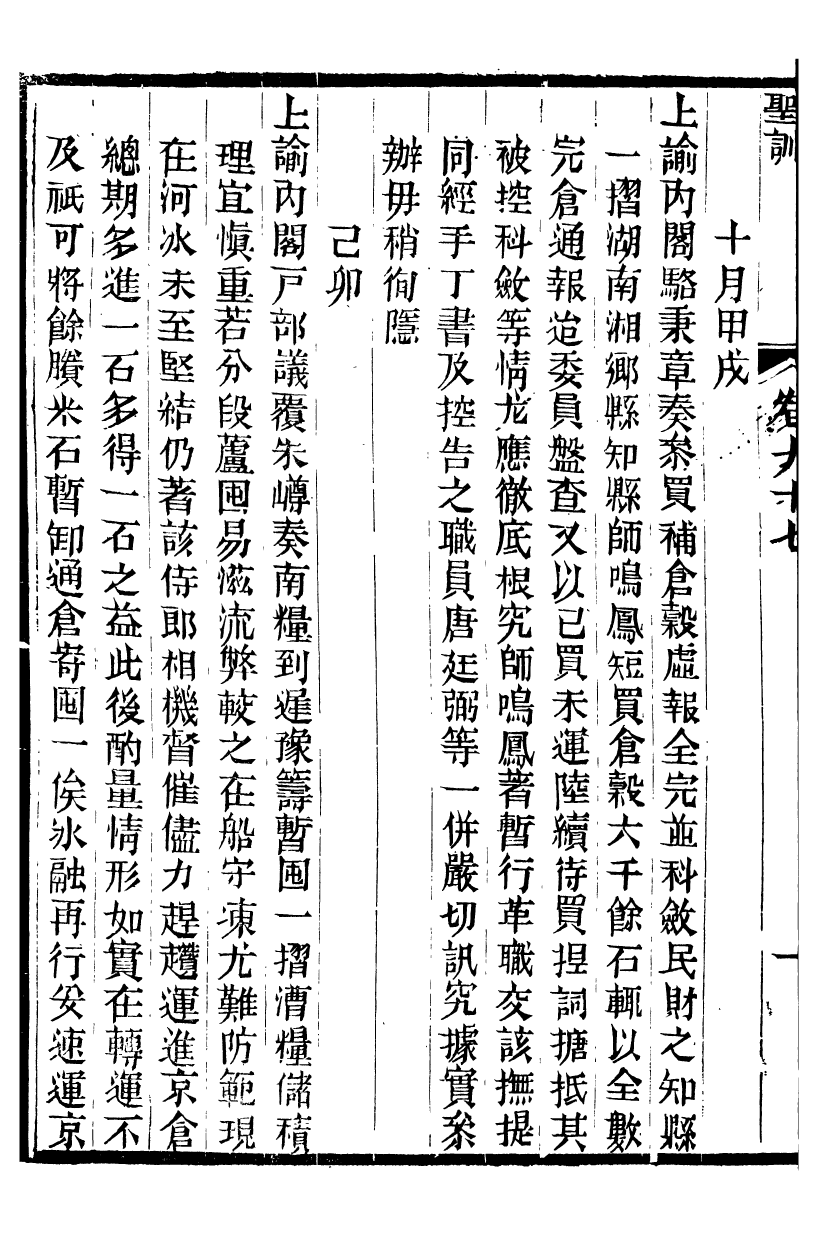 聖訓 卷九十七 一
十月甲戌
上諭內閣駱秉章奏叅買補倉穀虛報全完並科斂民財之知縣
一摺湖南湘鄉縣知縣師鳴鳳短買倉穀六千餘石輒以全數
完倉通報迨委員盤查又以已買未運陸續待買揑詞搪抵其
被控科斂等情尤應徹底根究師鳴鳳著暫行革職交該撫提
同經手丁書及控告之職員唐廷弼等一併嚴切訊究據實叅
辦毋稍徇隱
己卯
上諭內閣戸部議覆朱嶟奏南糧到遲豫籌暫囤一摺漕糧儲積
理宜愼重若分段蘆囤易滋流弊較之在船守凍尤難防範現
在河冰未至堅結仍著該侍郎相機督催儘力趕趲運進京倉
總期多進一石多得一石之益此後酌量情形如實在轉運不
及祇可將餘賸米石暫卸通倉寄囤一俟冰融再行妥速運京